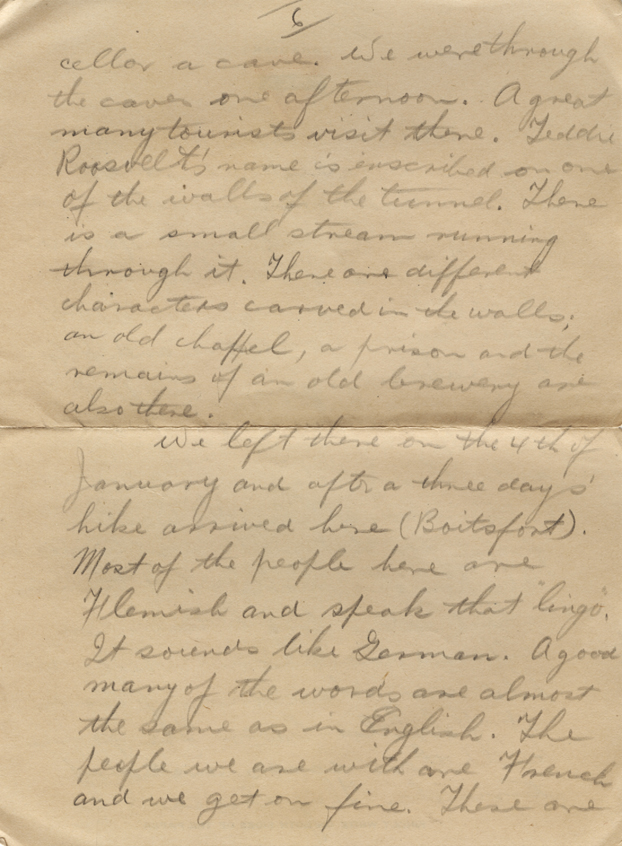 6
cellar a cave. We were through
the caves one afternoon. A great
many tourists visit there. Teddie
Roosvelt's name is enscribed on one
of the walls of the tunnel. There
is a small stream running
through it. There are different
characters carved in the walls;
an old chappel, a prison and the
remains of an old brewery are
also there.
We left there on the 4th of
January and after a three days'
hike arrived here (Boitsfort).
Most of the people here are
Flemish and speak that "lingo".
It sounds like German. A good
many of the words are almost
the same as in English. The
people we are with are French
and we get on fine. These are